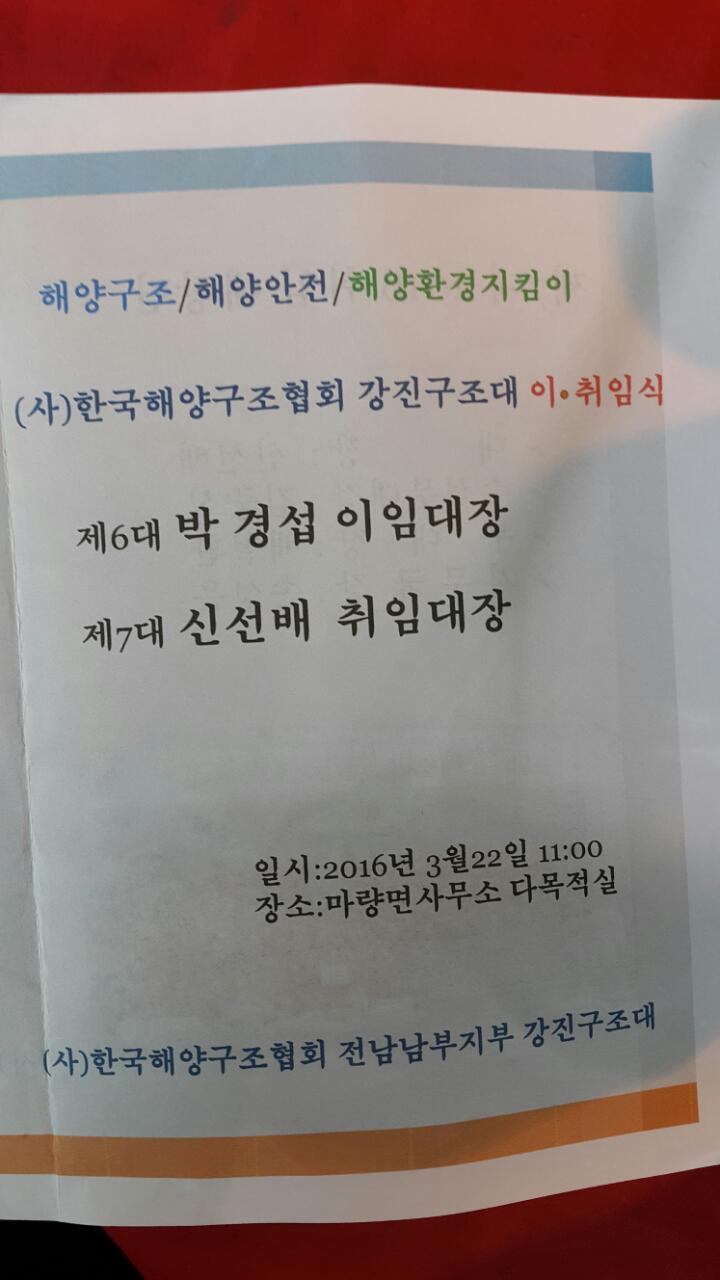 해양구조/해양안전/해양환경지킴이
(사)한국해양구조협회 강진구조대 이•취임식
제6대 박 경섭 이임대장
제7대 신선배 취임대장
일시:2016년 3월22일 11:00
장소:마량면사무소 다목적실
(사)한국해양구조협회 전남남부지부 강진구조대